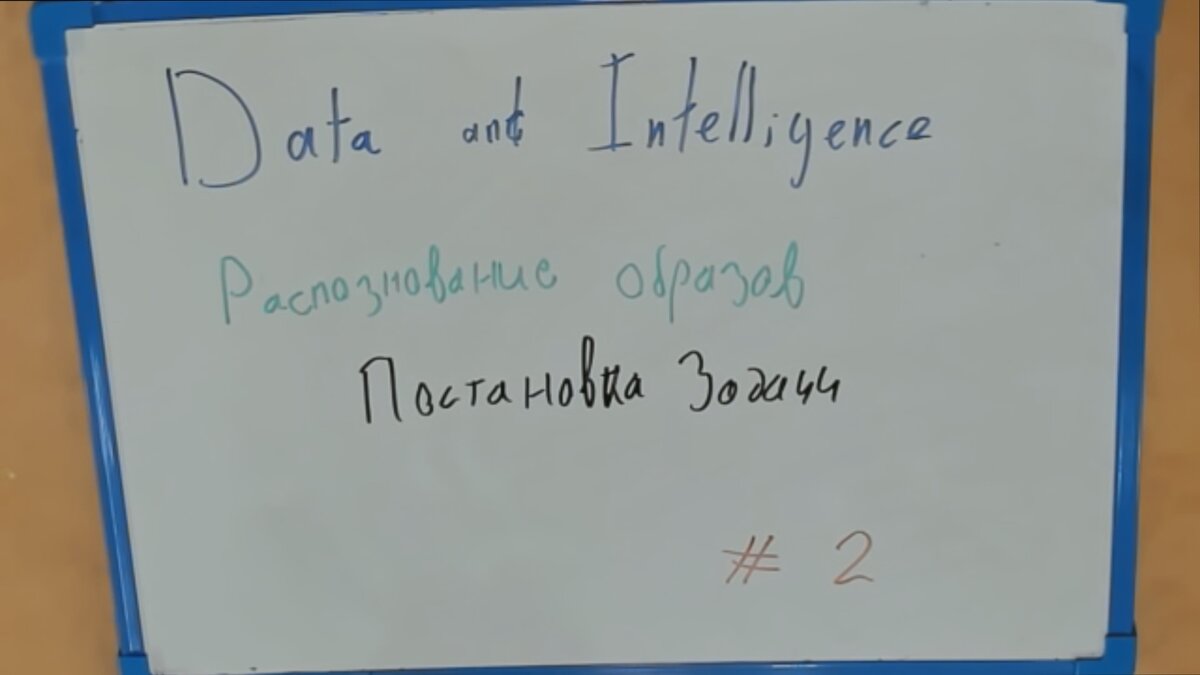 Data and Intelligence
Распознование образов
Постановка Задачи
# 2